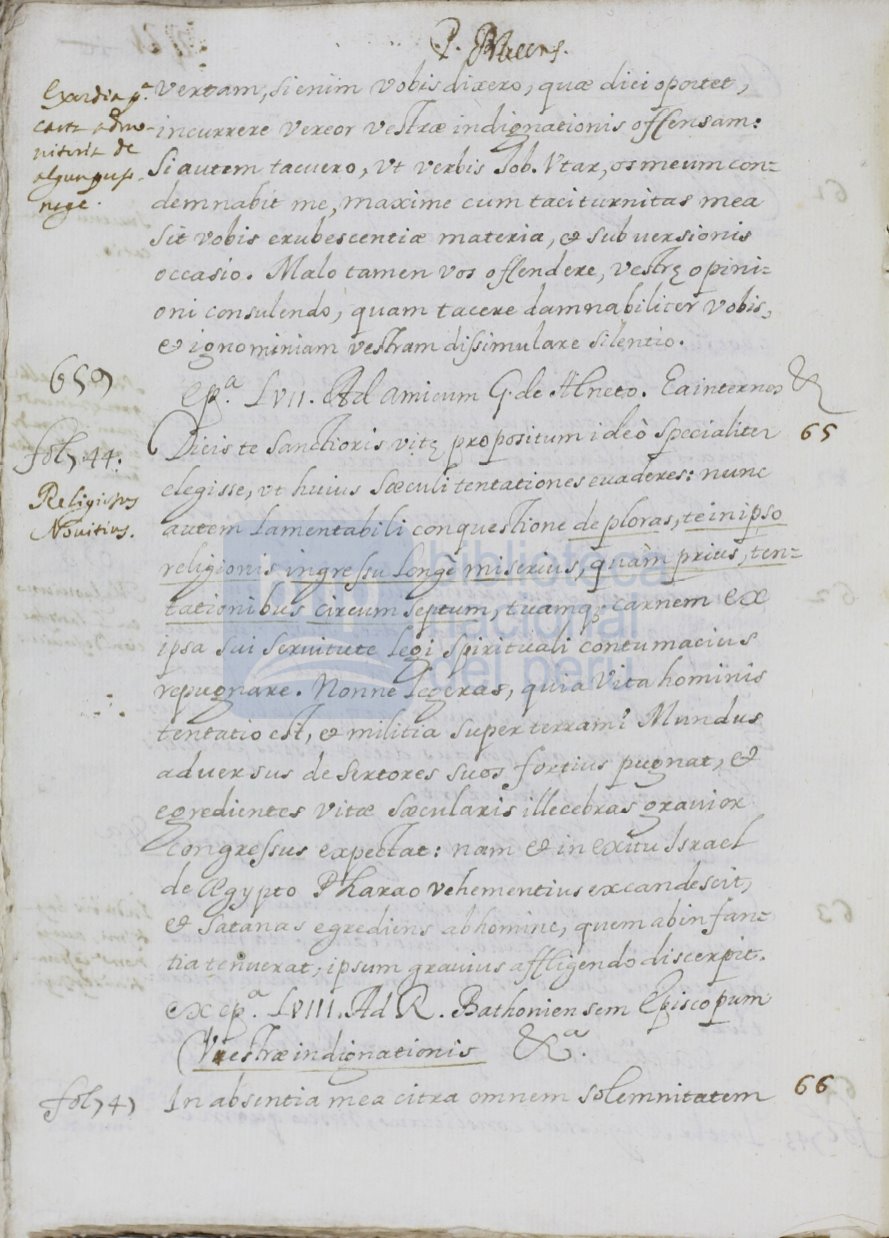 P. Blecens.
Exordia pᵃ.
carta admo-
nitoria de
algun gust.
nege.
vertam, si enim vobis dixero, quæ dici oportet,
incurrere vereor vestræ indignationis offensam:
Si autem tacuero, vt verbis Iob. vtar, os meum con=
demnabit me, maxime cum taciturnitas mea
sit vobis erubescentiæ materia, & subversionis
occasio. Malo tamen vos offendere, vestrę opini=
oni consulendo, quam tacere damnabiliter vobis,
& ignominiam vestram dissimulare silentio.
659
epᵃ. LVII. Ad amicum G. de Alneto. Ea internos &
fol, 44.
Religiosus
Nouitius.
Dicis te sanctioris vitę propositum ideò specialiter 65
elegisse, vt huius sæculi tentationes euaderes: nunc
autem lamentabili conquestione deploras, te in ipso
religionis ingressu longè miserius, quàm prius, ten=
tationibus circumseptum, tuamqȝ carnem ex
ipsa sui seruitute legi spirituali contumacius
repugnare. Nonne legeras, quia vita hominis
tentatio est, & militia super terram? Mundus
adversus desertores suos fortius pugnat, &
egredientes vitæ sæcularis illecebras grauior
congressus expectat: nam & in exitu Israel
de Ægypto Pharao vehementius excandescit,
& Satanas egrediens ab homine, quem ab infan=
tia tenuerat, ipsum gravius affligendo discerpit.
ex epᵃ. LVIII. Ad R. Bathoniensem Episcopum
Vestræ indignationis &ᵃ.
fol, 45 In absentia mea citra omnem solemnitatem 66
biblioteca
nacional
del perú